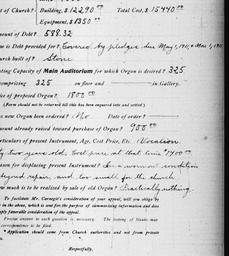 of Church? Building, $12290.00 Total Cost, $15440.00
Equipment, $1350
mount of Debt? 588.32
w is Debt provided for? Covered by pledges due May 1, 1911 &
urch built of? Stone
ting Capacity of Main Auditorium for which Organ is desired? 325
comprising 325 on floor and in Gallery.
ice of proposed Organ? 1800.00
(Form should not be returned till this has been inquired into and settled.)
s new Organ been ordered? No Date of order?
mount already raised toward purchase of Organ? 900.00
articulars of present Instrument, Age, Cost Price, Etc.
two years old; Cost price at that time $
eason for displacing present Instrument? In a worn out condition,
beyond repair, and too small for the church
ow much is to be realized by sale of old Organ? Practically nothing.
To facilitate Mr. Carnegie's consideration of your appeal, will you oblige by
in the above, which is sent for the purpose of summarizing information and does
imply favorable consideration of the appeal.
Precise answer to each question is necessary. The leaving of blanks may
correspondence to be filed.
Application should come from Church authorities and not from private
Respectfully,